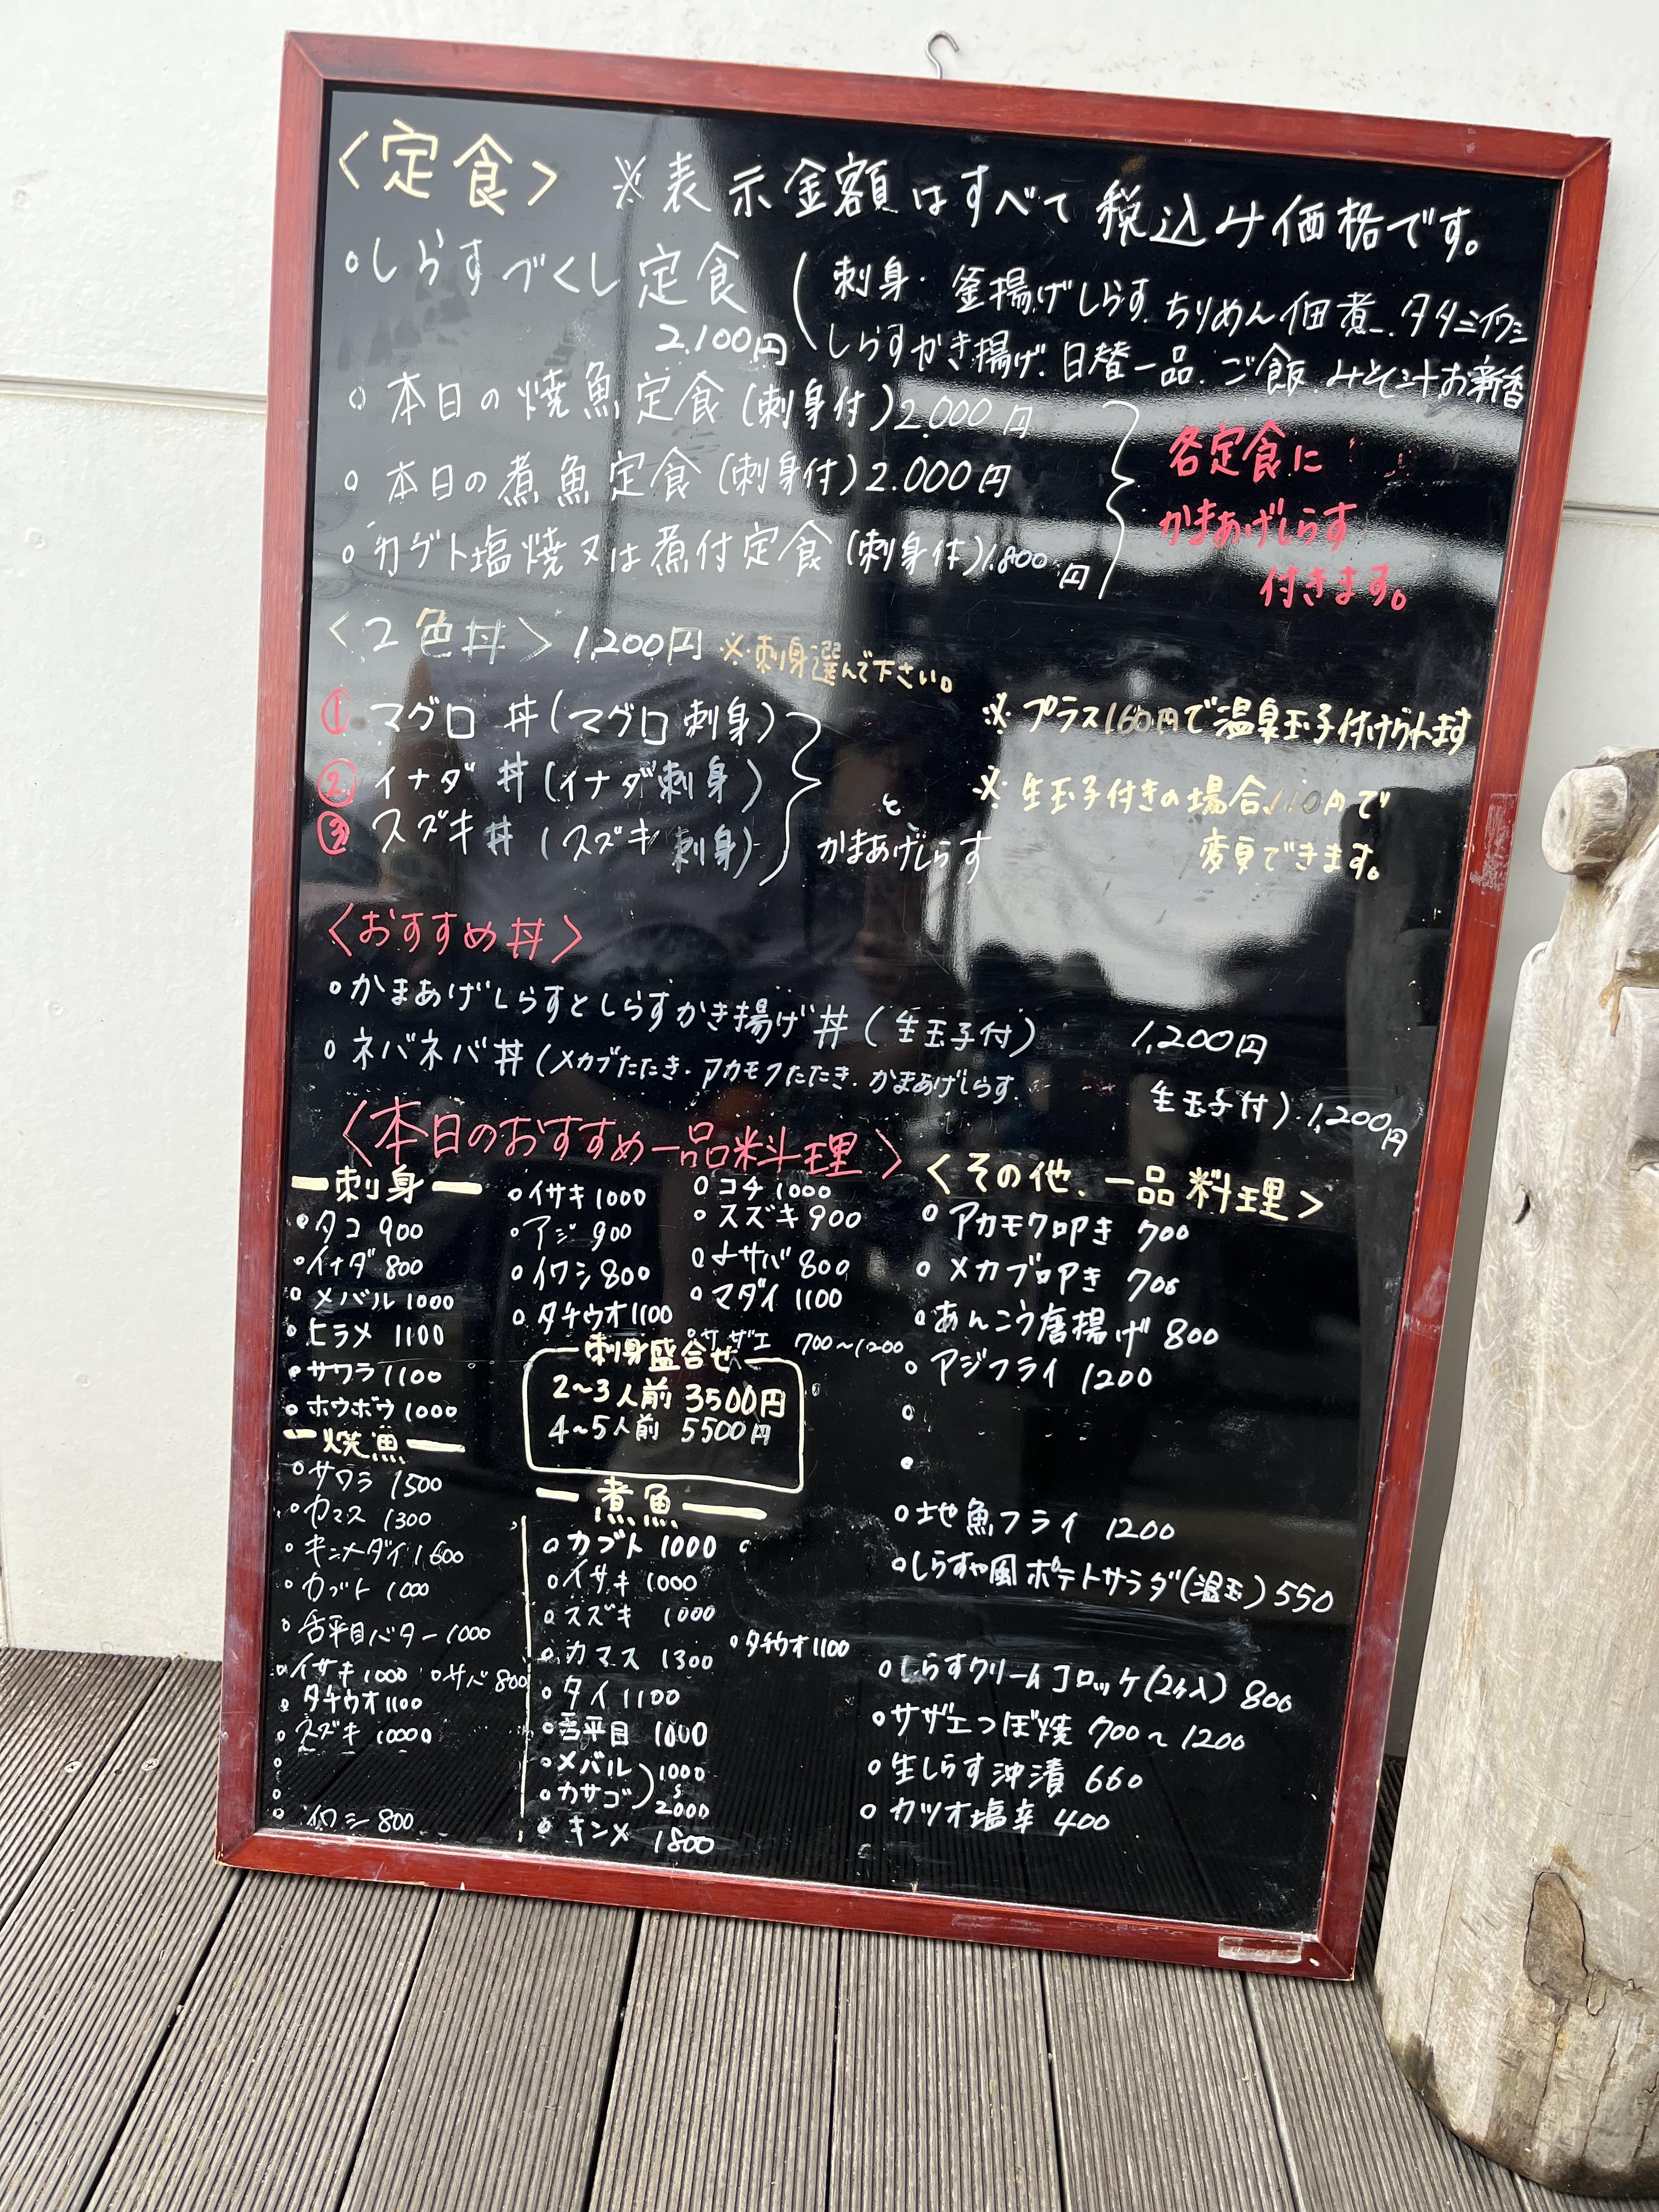 <定食> ※表示金額はすべて税込み価格です。
○しらすづくし定食 (刺身.釜揚げしらす.ちりめん佃煮.タタミイワシ
2.100円 しらすかき揚げ.日替一品.ご飯.みそ汁お新香
○本日の焼魚定食(刺身付)2.000円
○本日の煮魚定食(刺身付)2.000円
○カブト塩焼又は煮付定食(刺身付)1.800円
各定食に
かまあげしらす
付きます。
<2色丼>1,200円 ※刺身選んで下さい。
①マグロ丼(マグロ刺身)
②イナダ丼(イナダ刺身)
③スズキ丼(スズキ刺身)
と
かまあげしらす
※プラス160円で温泉玉子付けられます
※生玉子付きの場合、110円で
変更できます。
<おすすめ丼>
○かまあげしらすとしらすかき揚げ丼(生玉子付) 1,200円
○ネバネバ丼(メカブたたき.アカモクたたき.かまあげしらす.
生玉子付).1,200円
<本日のおすすめ一品料理>
ー刺身ー
○タコ 900
○イナダ 800
○メバル 1000
○ヒラメ 1100
○サワラ 1100
○ホウボウ 1000
○イサキ 1000
○アジ 900
○イワシ 800
○タチウオ 1100
○コチ 1000
○スズキ 900
○〆サバ 800
○マダイ 1100
○サザエ 700~1200
刺身盛合せ
2~3人前 3500円
4~5人前 5500円
ー焼魚ー
○サワラ 1500
○カマス 1300
○キンメダイ 1600
○カブト 1000
○舌平目バター 1000
○イサキ 1000 ○サバ 800
○タチウオ 1100
○スズキ 1000
○
○
○イワシ 800
ー煮魚ー
○カブト 1000 ○
○イサキ 1000
○スズキ 1000
○カマス 1300 ○タチウオ 1100
○タイ 1100
○舌平目 1000
○メバル)1000
○カサゴ)2000
○キンメ 1800
<その他、一品料理>
○アカモク叩き 700
○メカブ叩き 700
○あんこう唐揚げ 800
○アジフライ 1200
○
○
○地魚フライ 1200
○しらすや風ポテトサラダ(温玉)550
○しらすクリームコロッケ(2ケ入) 800
○サザエつぼ焼 700~1200
○生しらす沖漬 660
○カツオ塩辛 400